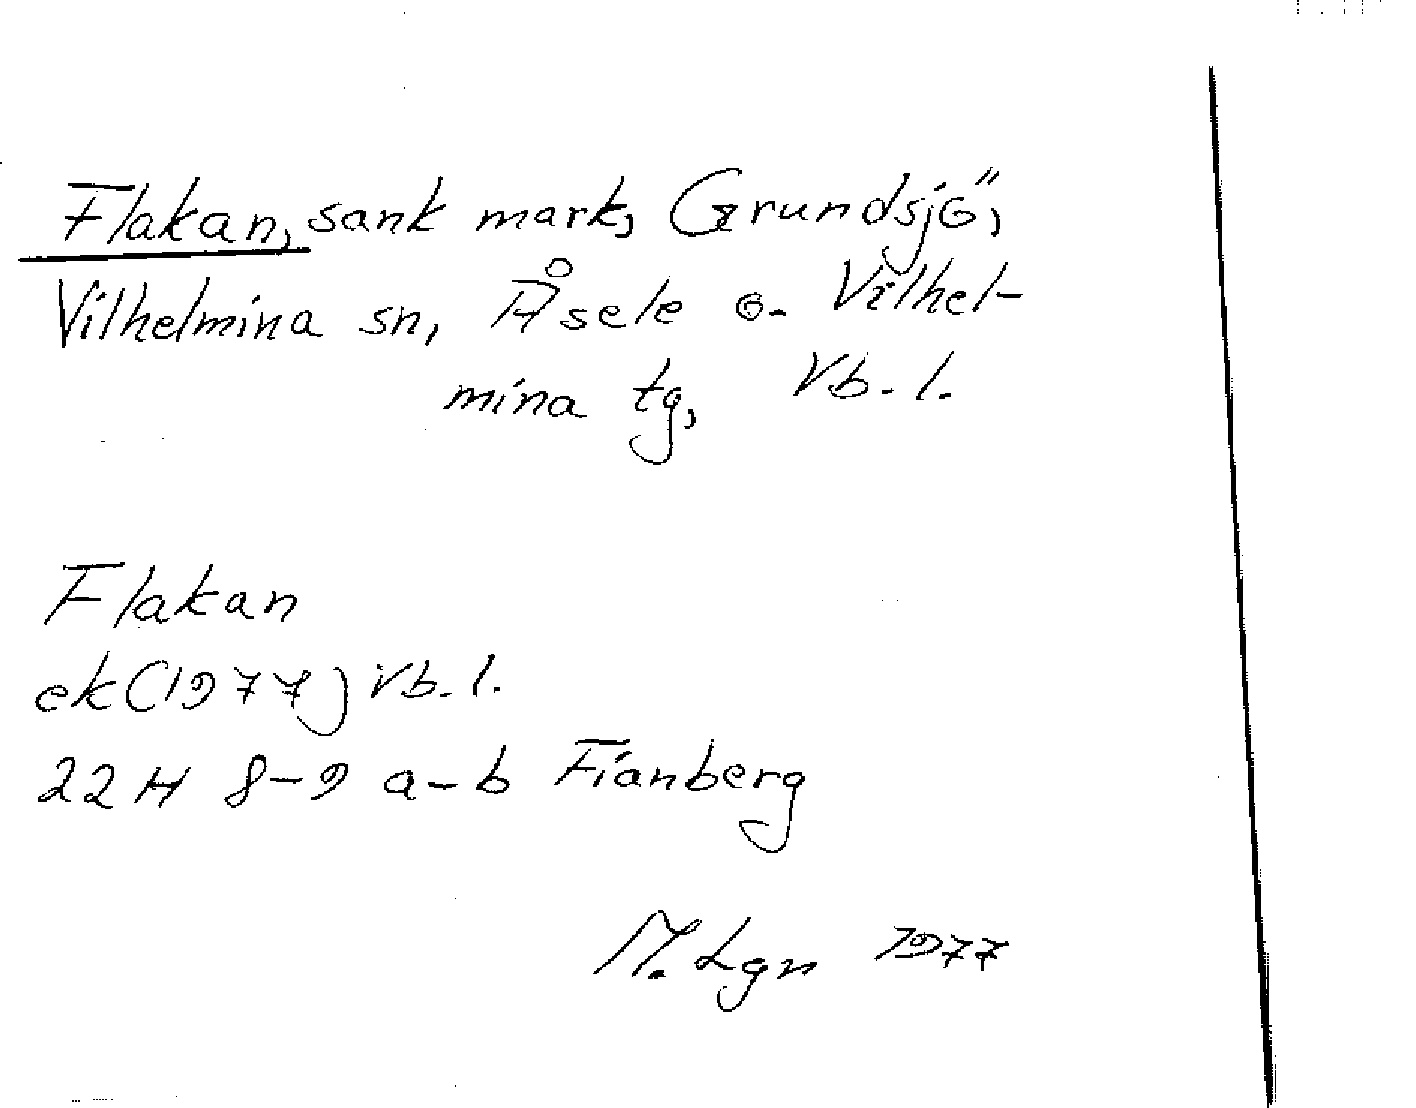 Flakan, sank mark, Grundsjö,
Vilhelmina sn, Åsele o. Vilhel-
mina tg, Vb. l.
Flakan
ek (1977) Vb. l.
22 H 8-9 a-b Fianberg
M. Lgn 1977